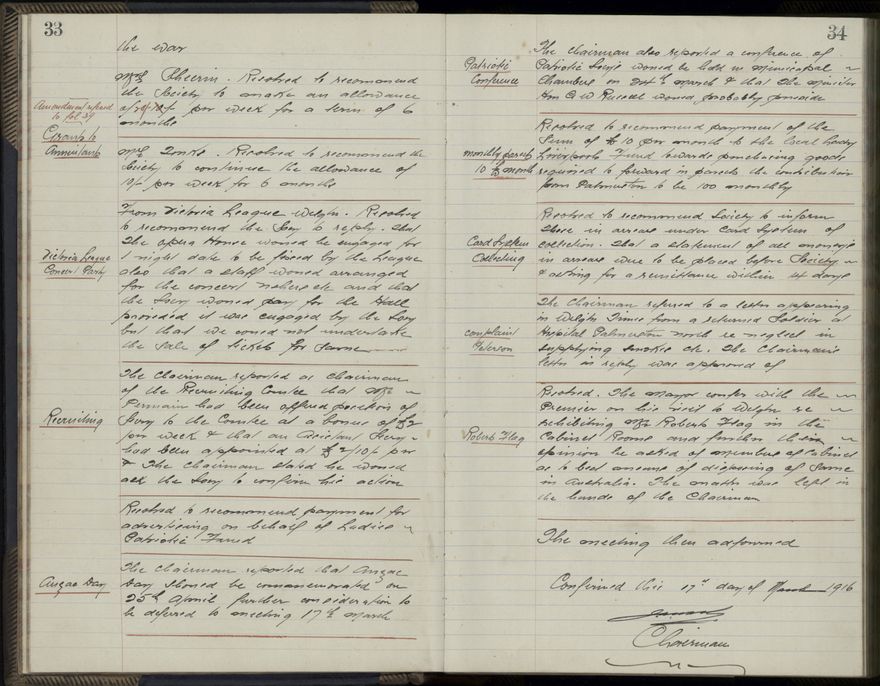 33
the war
Mrs Sheerin. Resolved to recommend
the Society to make an allowance
of 10/- per week for a term of 6
months
Amendment referred
to fol 39
Grants to
Annuitants
Mrs Resolved to recommend the
Society to continue the allowance of
10/- per week for 6 months
Victoria League
Concert Party
From Victoria League Welgtn. Resolved
to recommend the Socy to reply. that
the Opera House would be engaged for
1 night date to be fixed by the League
also that a staff would arranged
for the concert etc and that
the Socy would pay for the Hall
provided it was engaged by the Socy
but that we could not undertake
the sale of tickets for same
Recruiting
The Chairman reported as Chairman
of the Recruiting Comtee that Mr
had been offered position of
Secy to the Comtee at a bonus of £2
per week & that an Assistant Secy
had been appointed at £2/10/- per
The Chairman stated he would
ask the Socy to confirm his action
Resolved to recommend payment for
advertising on behalf of Ladies
Patriotic Fund
Anzac Day
The Chairman reported that Anzac
Day should be commemorated on
25th April further consideration to
be deferred to meeting 17th March
34
Patriotic
Conference
The Chairman also reported a conference of
Patriotic Socys would be held in Municipal
Chambers on 24th March & that the Minister
Hon G W Russell would probably preside
monthly parcels
10 £ month
Resolved to recommend payment of the
Sum of £10 per month to the Local Lady
Liverpool Fund towards purchasing goods
required to forward in parcels the contribution
from Palmerston to be 100 monthly
Card System
Collecting
Resolved to recommend Society to inform
those in arrear under Card System of
collection. That a statement of all moneys
in arrear were to be placed before Society
& asking for a remittance within 14 days
complaint
Paterson
The Chairman referred to a letter appearing
in Welgtn Times from a returned Soldier at
Hospital Palmerston north re neglect in
supplying smokes etc. The Chairmans
letter in reply was approved of
Roberts Flag
Resolved. The Mayor confer with the
Premier on his visit to Welgtn re
exhibiting Mr Roberts Flag in the
Cabinet Rooms and further their
opinion be asked of members of Cabinet
as to best means of disposing of same
in Australia. The matter was left in
the hands of the Chairman
The meeting then adjourned
Confirmed this 17th day of March 1916
Chairman